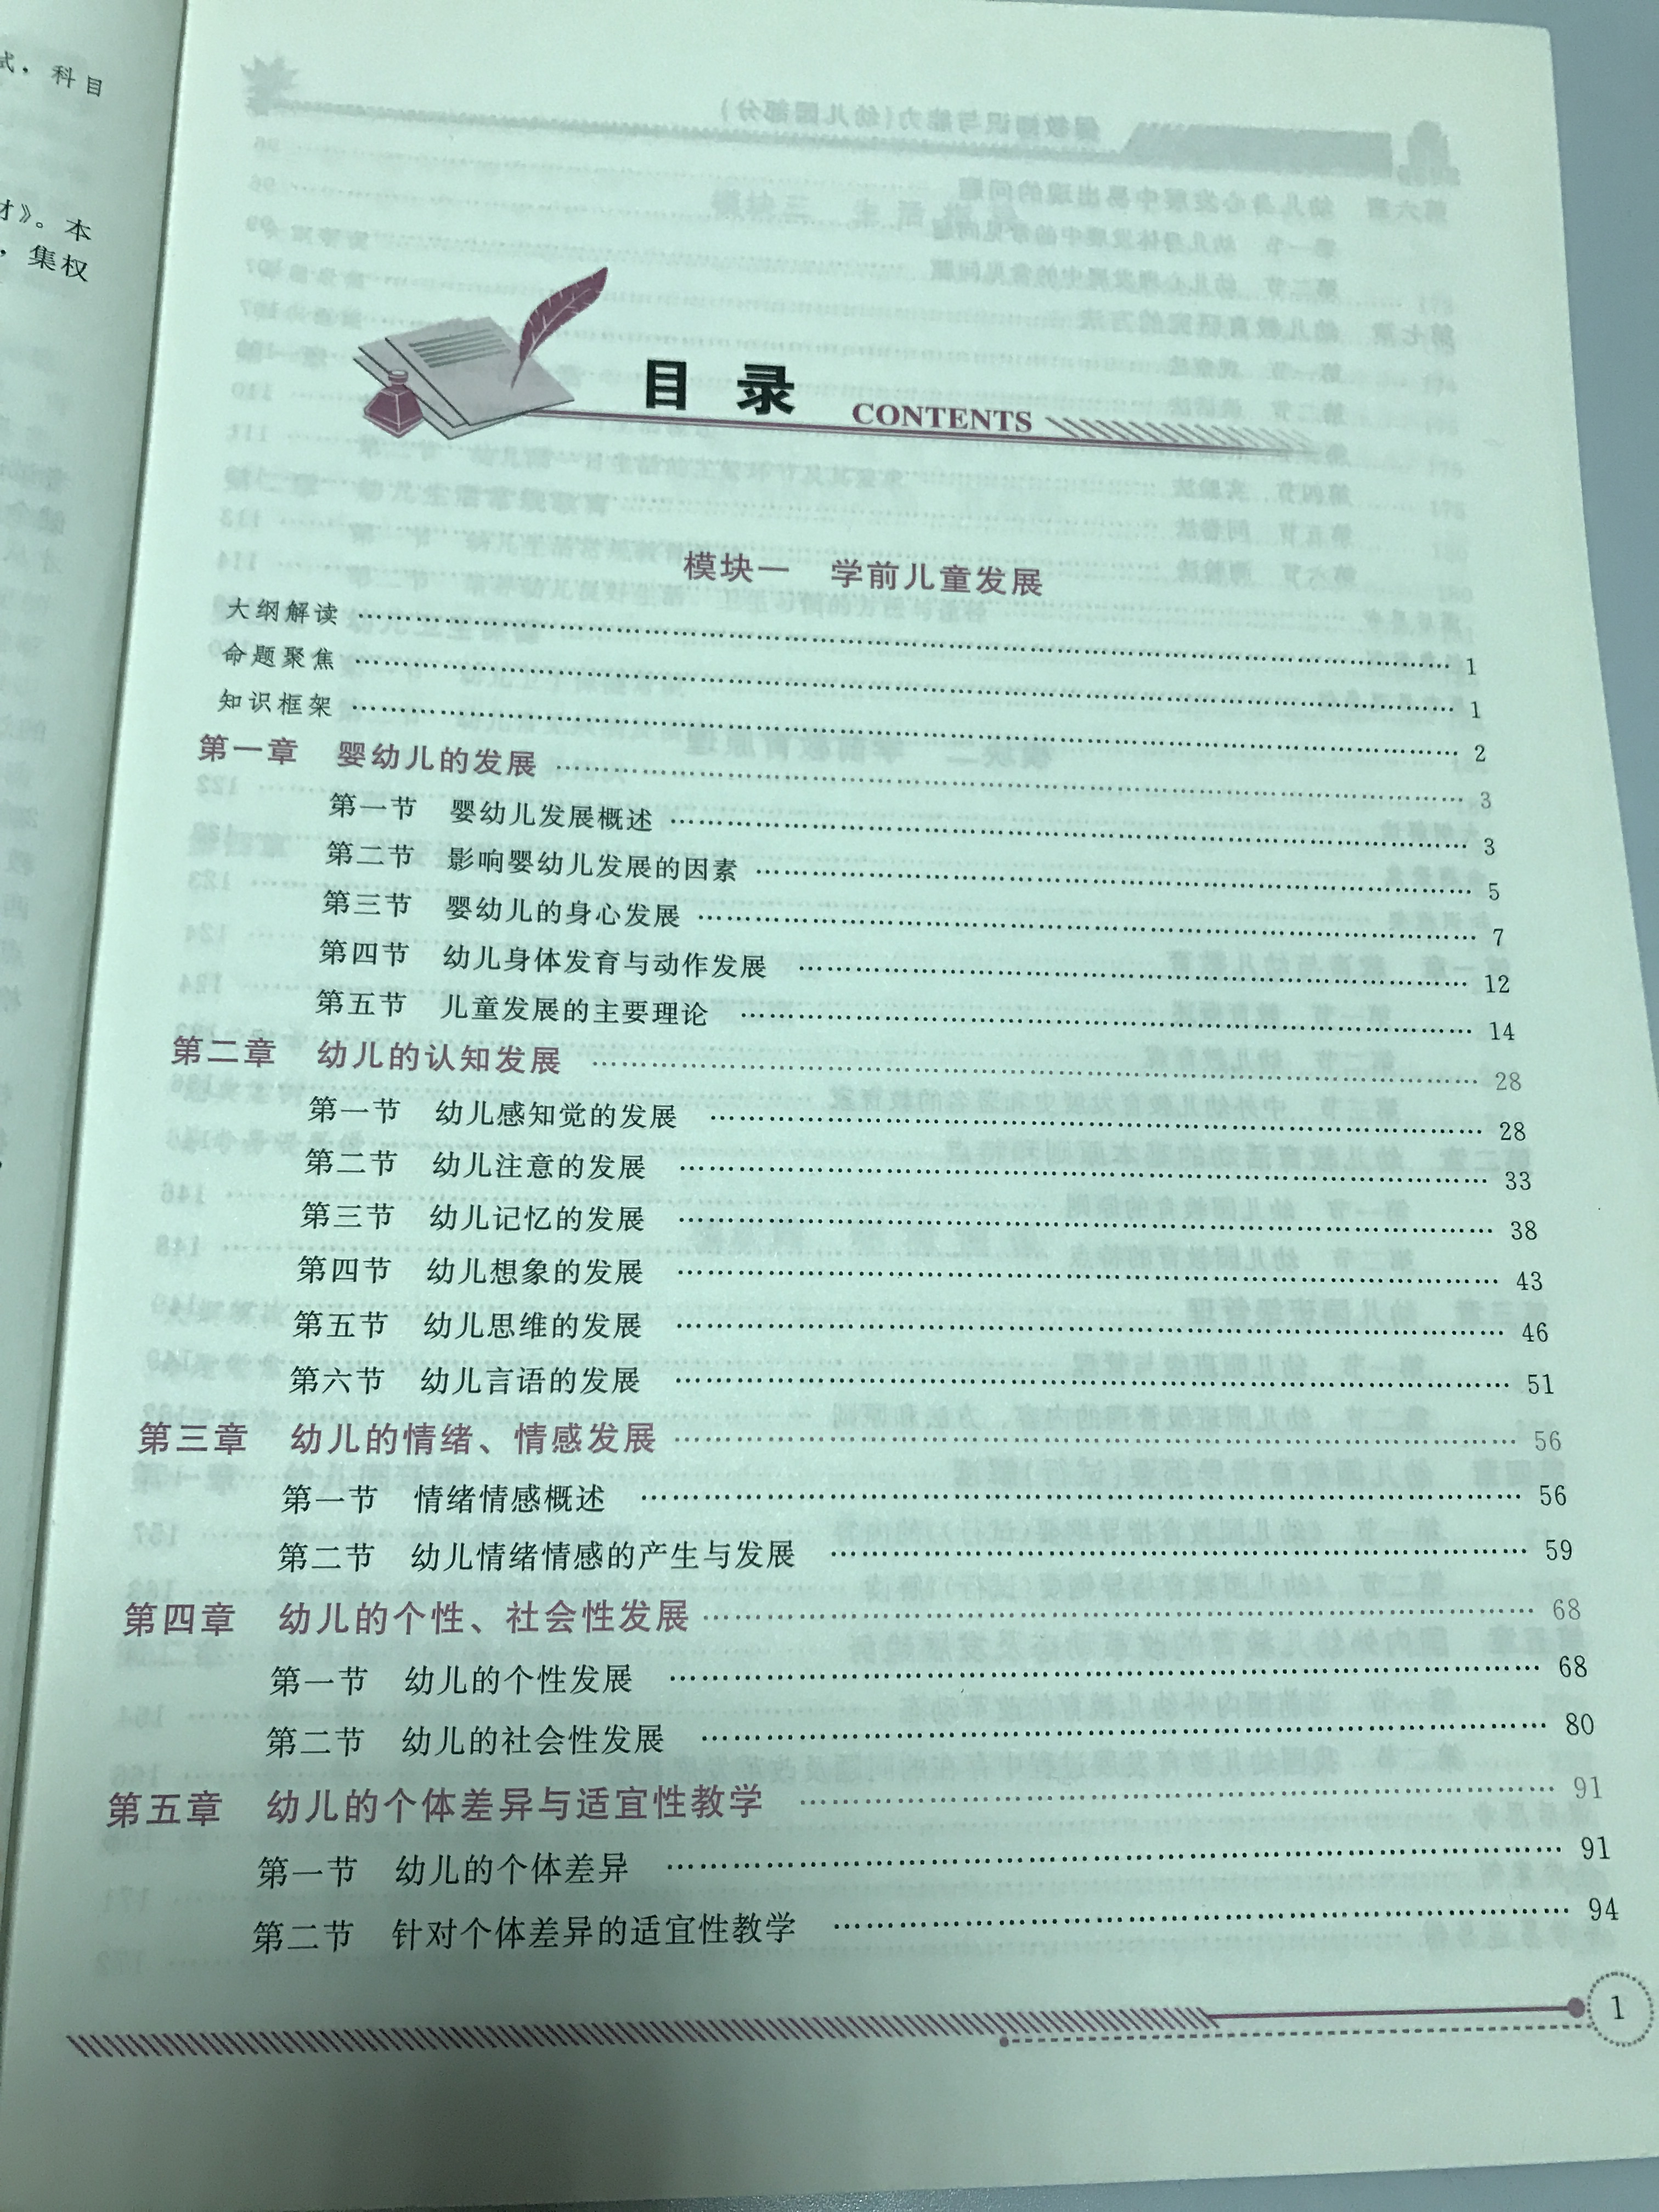 式，科目
材》。本
，集权
目 录 CONTENTS
模块一 学前儿童发展
大纲解读 …… 1
命题聚焦 …… 1
知识框架 …… 2
第一章 婴幼儿的发展 …… 3
第一节 婴幼儿发展概述 …… 3
第二节 影响婴幼儿发展的因素 …… 5
第三节 婴幼儿的身心发展 …… 7
第四节 幼儿身体发育与动作发展 …… 12
第五节 儿童发展的主要理论 …… 14
第二章 幼儿的认知发展 …… 28
第一节 幼儿感知觉的发展 …… 28
第二节 幼儿注意的发展 …… 33
第三节 幼儿记忆的发展 …… 38
第四节 幼儿想象的发展 …… 43
第五节 幼儿思维的发展 …… 46
第六节 幼儿言语的发展 …… 51
第三章 幼儿的情绪、情感发展 …… 56
第一节 情绪情感概述 …… 56
第二节 幼儿情绪情感的产生与发展 …… 59
第四章 幼儿的个性、社会性发展 …… 68
第一节 幼儿的个性发展 …… 68
第二节 幼儿的社会性发展 …… 80
第五章 幼儿的个体差异与适宜性教学 …… 91
第一节 幼儿的个体差异 …… 91
第二节 针对个体差异的适宜性教学 …… 94
1